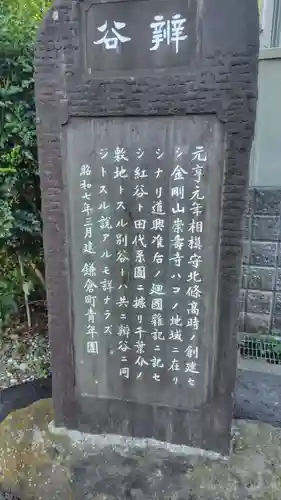 辨谷
元亨元年相模守北條高時ノ創建セ
シ金剛山崇壽寺ハコノ地域ニ在リ
シナリ道興准后ノ廻國雜記ニ記セ
シ紅谷ト田代系圖ニ據リ千葉介ノ
敷地トスル別谷トハ共ニ辨谷ニ同
ジトスル説アルモ詳ナラズ
昭和七年三月建 鎌倉町青年團